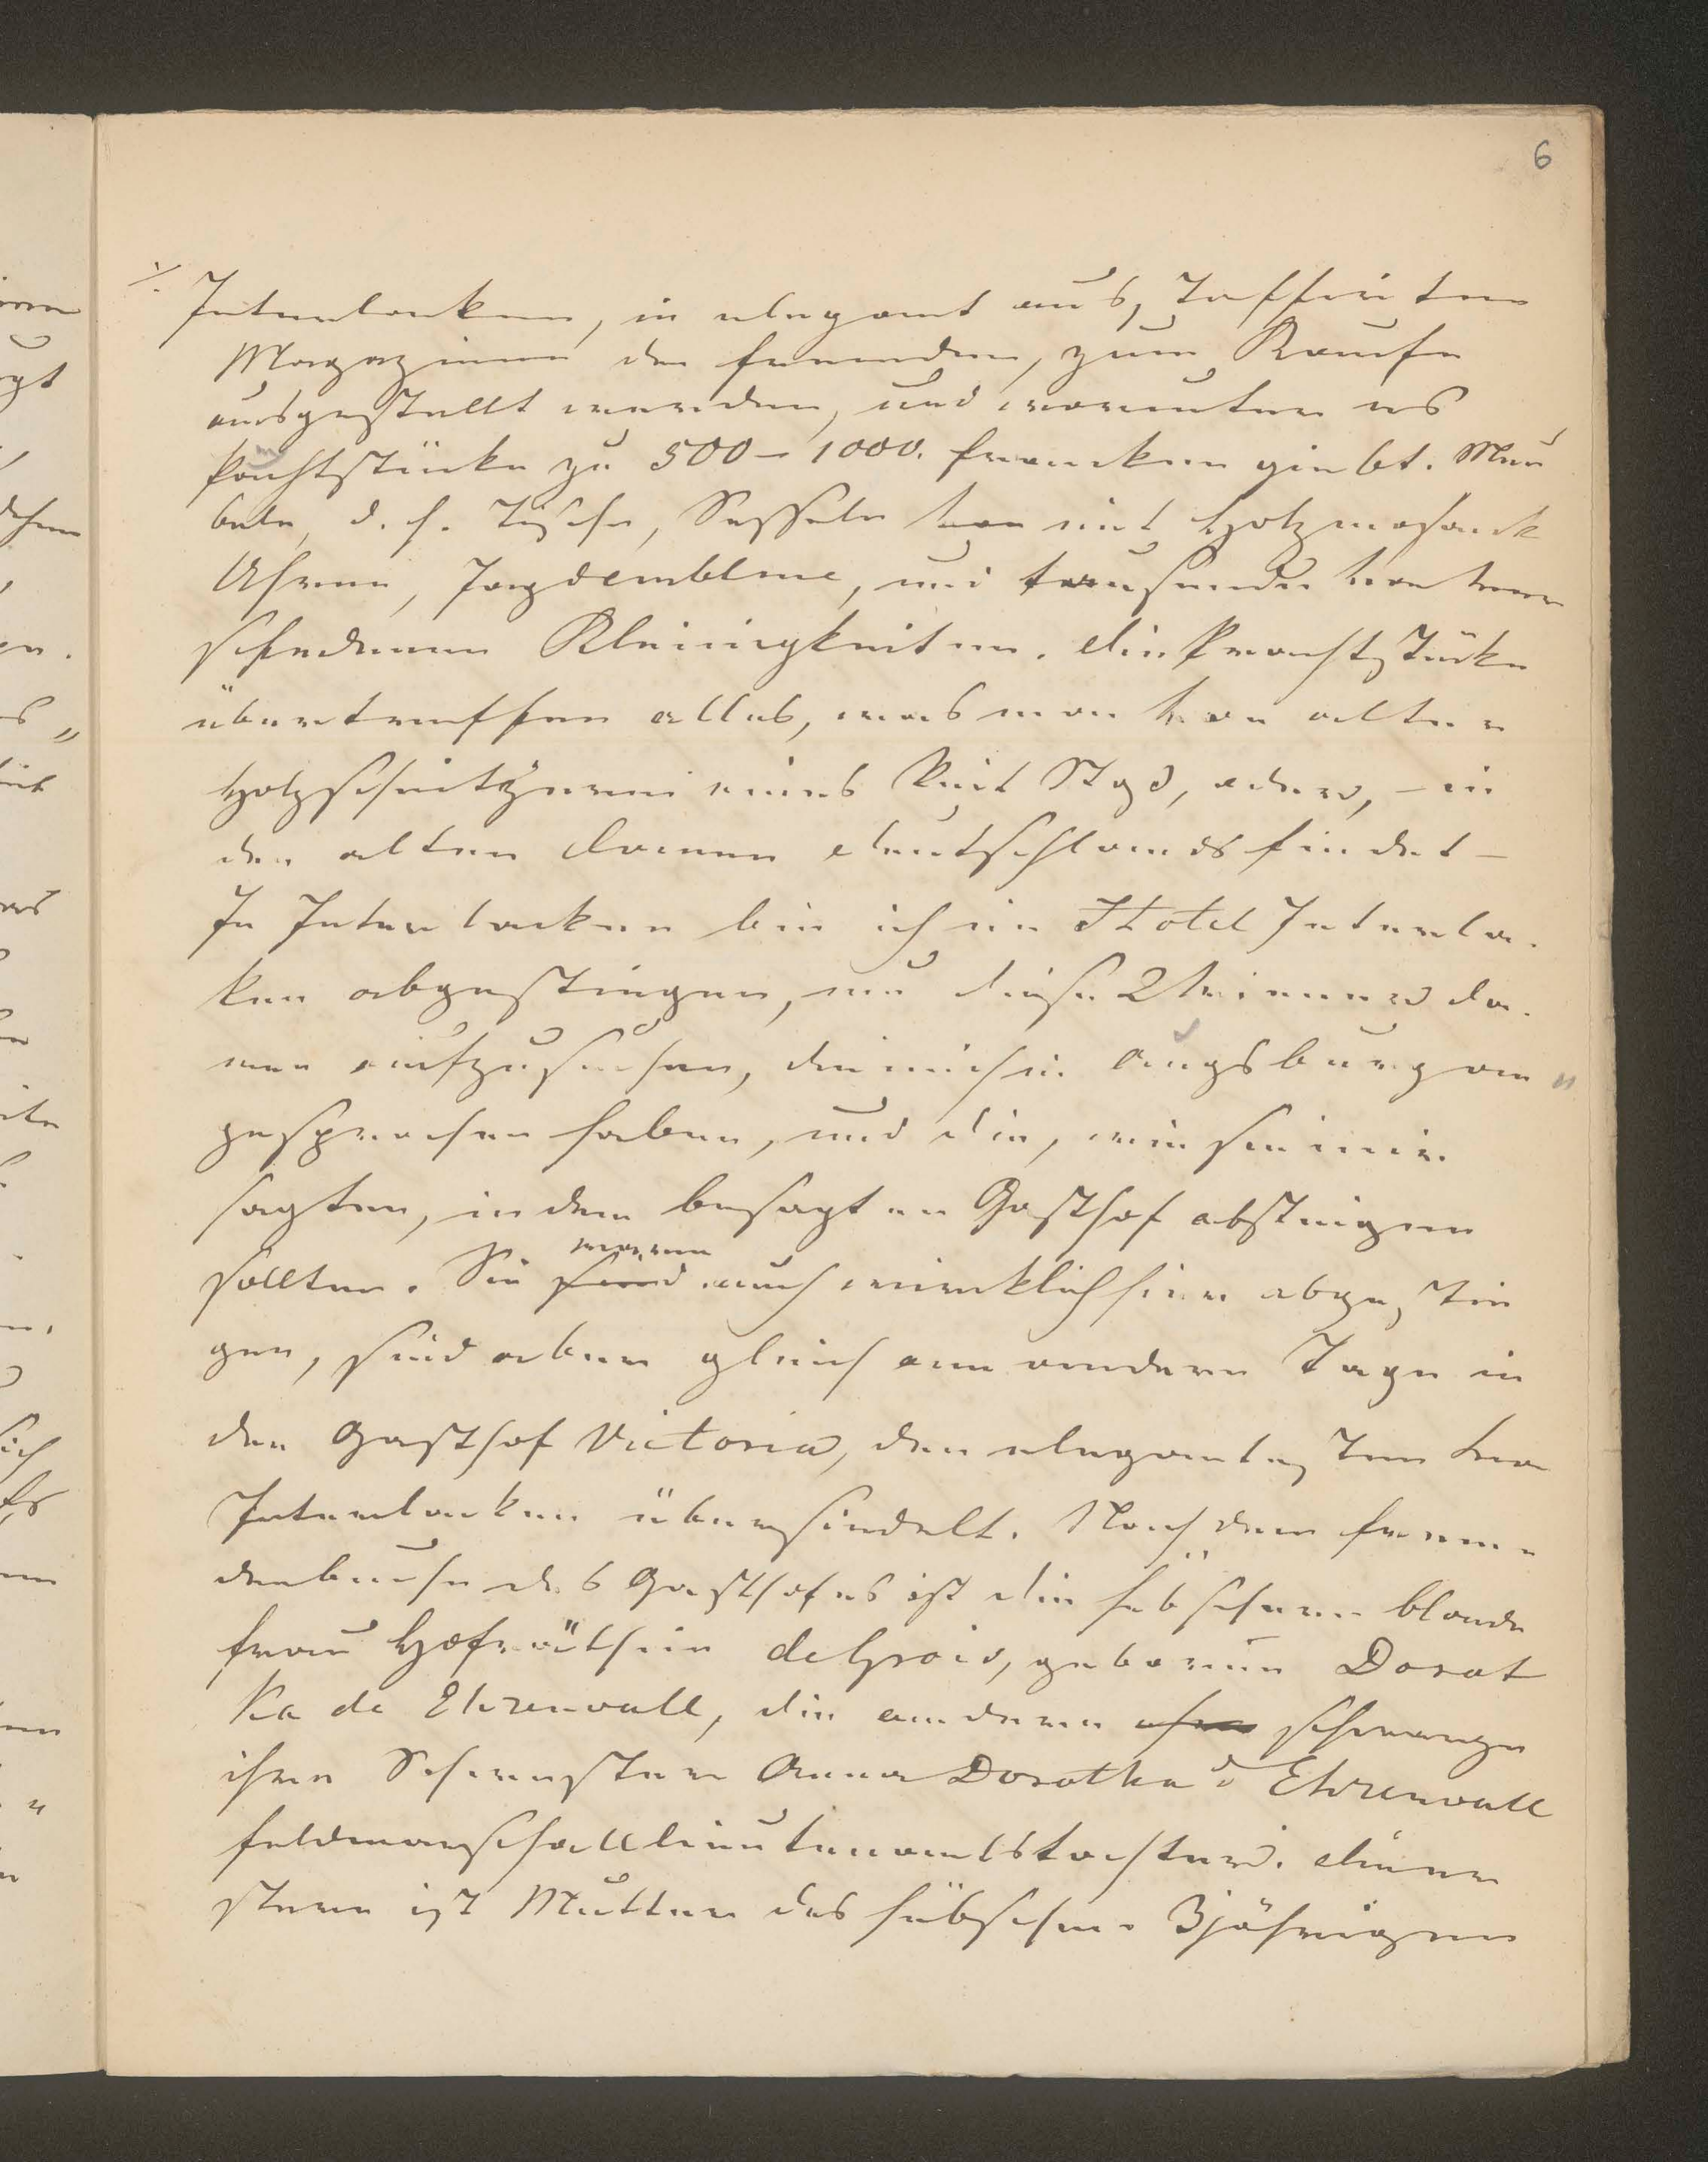 6
Interlacken, in elegant ausstaffirten
Magazinen den Fremden, zum Kaufe
ausgestellt werden, und worunter es
Prachtstücke zu 500 – 1000. Francken giebt. Meu
beln, d. h. Tische, Sesseln mit Holzmosaick
Uhren, Jagdembleme, und tausende von ver
schiedenen Kleinigkeiten. Die Prachtstücke
übertreffen alles, was man von alten
Holzschnitzereien eines Veit Stoß, oder, – in
den alten Domen Deutschlands findet –
In Interlacken bin ich im Hotel Interla-
ken abgestiegen, um diese 2 Wiener Da-
men aufzusuchen, die mich in Augsburg an„
gesprochen haben, und die, wie sie mir
sagten, in dem besagten Gasthof absteigen
sollten. Sie sind waren auch wircklich hier abgestie
gen, sind aber gleich am andern Tage in
den Gasthof Victoria, den elegantesten von
Interlacken übersiedelt. Nach dem Frem-
denbuche des Gasthofes ist die hübschere blonde
Frau Hofräthin deGrois, geborene Dorot
hea de Ehrenwall, die andere schwarze
ihre Schwester Anna Dorothea d Ehrenwall
Feldmarschalllieutenantstochter. Die er
stere ist Mutter des hübschen 3jährigen